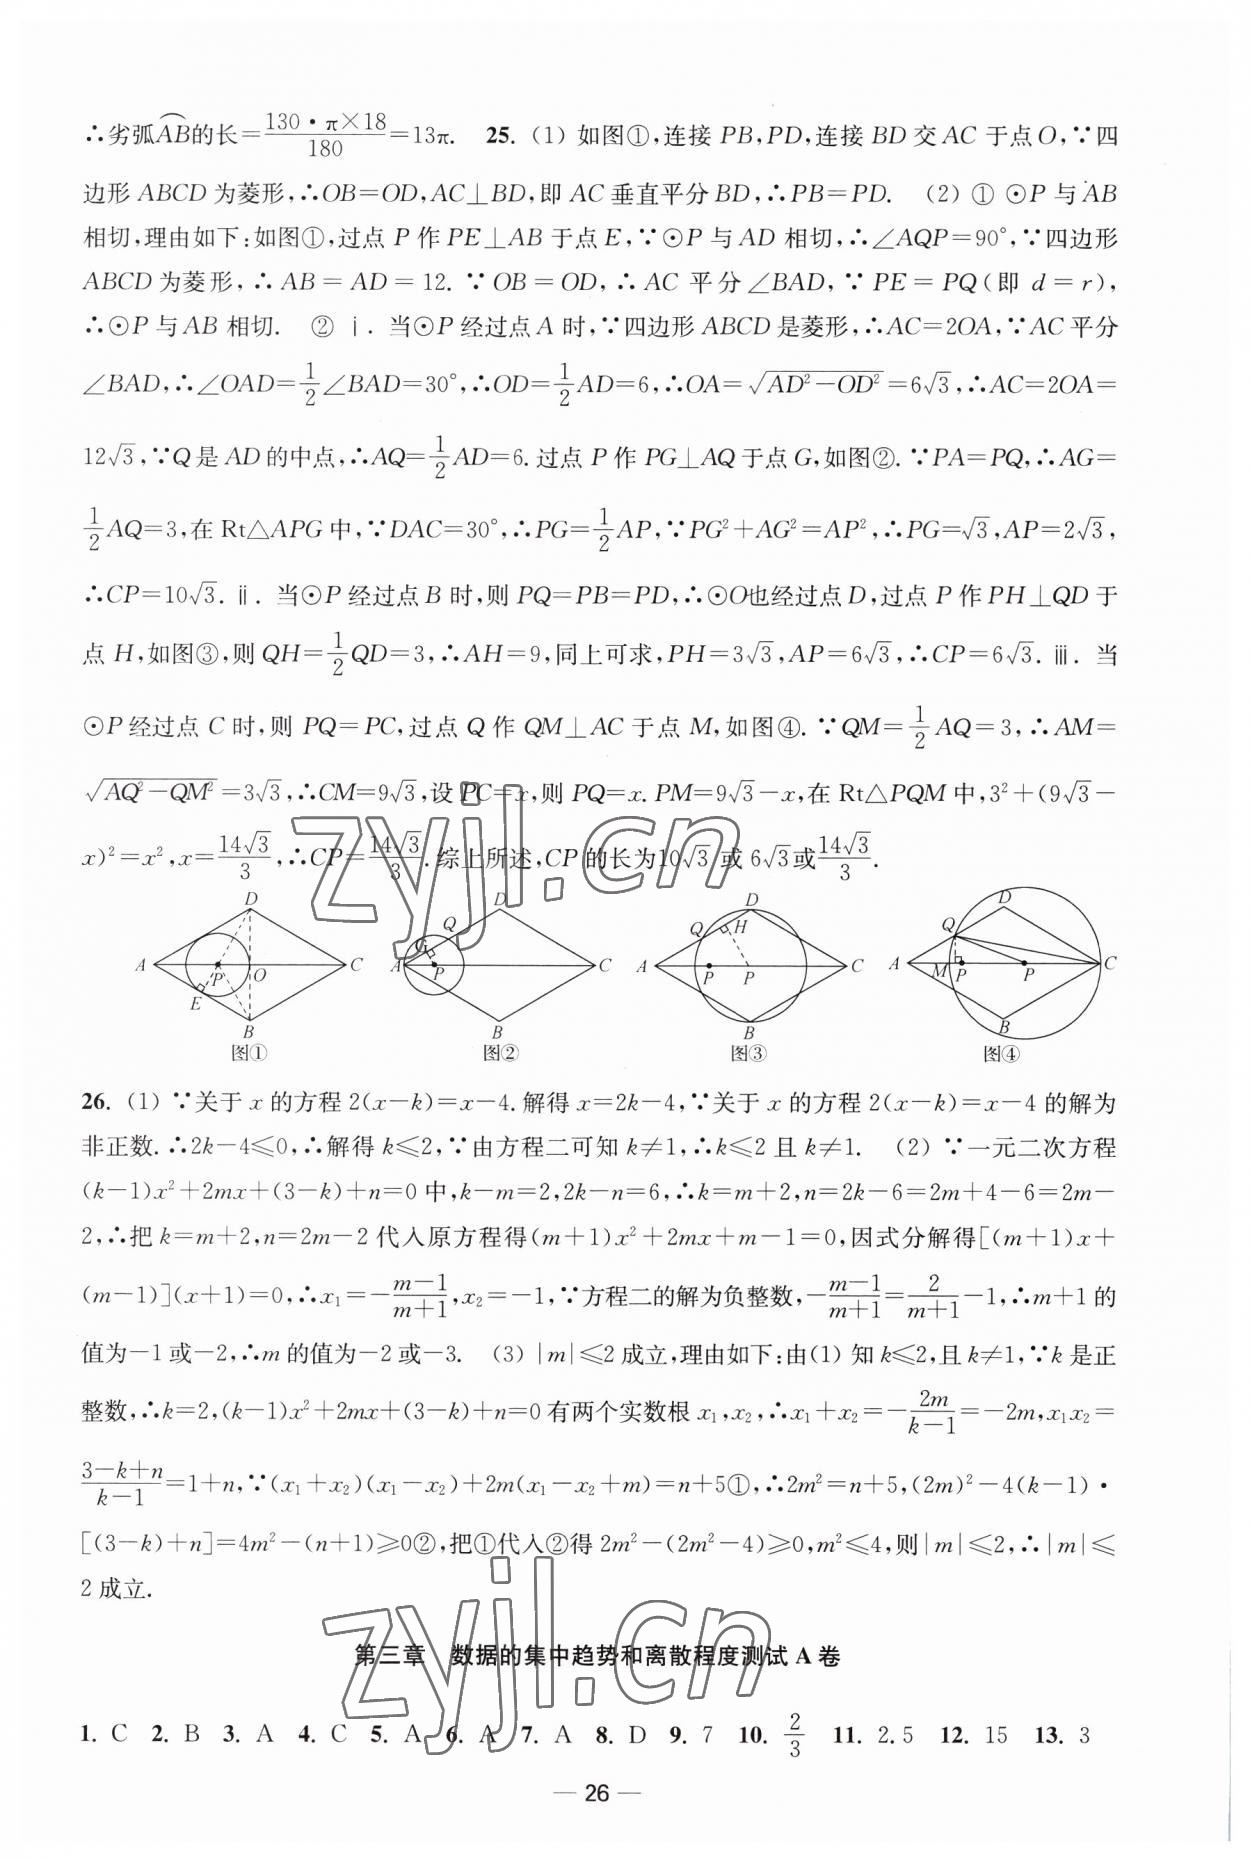 ∴劣弧AB的长=130·π×18/180=13π. 25.(1) 如图①,连接 PB,PD,连接 BD 交 AC 于点O,∵四
边形 ABCD 为菱形,∴OB=OD,AC⊥BD,即 AC 垂直平分 BD,∴PB=PD. (2) ① ⊙P 与 AB
相切,理由如下:如图①,过点 P 作 PE⊥AB 于点 E,∵⊙P 与 AD 相切,∴∠AQP=90°,∵四边形
ABCD 为菱形,∴AB=AD=12. ∵OB=OD,∴AC 平分∠BAD,∵PE=PQ(即 d=r),
∴⊙P 与 AB 相切. ② ⅰ. 当⊙P 经过点 A 时,∵四边形 ABCD 是菱形,∴AC=2OA,∵AC 平分
∠BAD,∴∠OAD=1/2∠BAD=30°,∴OD=1/2AD=6,∴OA=√(AD²-OD²)=6√3,∴AC=2OA=
12√3,∵Q 是 AD 的中点,∴AQ=1/2AD=6. 过点 P 作 PG⊥AQ 于点 G,如图②. ∵PA=PQ,∴AG=
1/2AQ=3,在 Rt△APG 中,∵DAC=30°,∴PG=1/2AP,∵PG²+AG²=AP²,∴PG=√3,AP=2√3,
∴CP=10√3. ⅱ. 当⊙P 经过点 B 时,则 PQ=PB=PD,∴⊙O也经过点 D,过点 P 作 PH⊥QD 于
点 H,如图③,则 QH=1/2QD=3,∴AH=9,同上可求,PH=3√3,AP=6√3,∴CP=6√3. ⅲ. 当
⊙P 经过点 C 时,则 PQ=PC,过点 Q 作 QM⊥AC 于点 M,如图④. ∵QM=1/2AQ=3,∴AM=
√(AQ²-QM²)=3√3,∴CM=9√3,设 PC=x,则 PQ=x. PM=9√3-x,在 Rt△PQM 中,3²+(9√3-
x)²=x²,x=14√3/3,∴CP=14√3/3. 综上所述,CP 的长为10√3 或 6√3或14√3/3.
D
A P O C
E
B
图①
D
Q
G
A P C
B
图②
D
Q H
A P P C
B
图③
D
Q
A M P P C
B
图④
26.(1) ∵关于 x 的方程 2(x-k)=x-4. 解得 x=2k-4,∵关于 x 的方程 2(x-k)=x-4 的解为
非正数. ∴2k-4≤0,∴解得 k≤2,∵由方程二可知 k≠1,∴k≤2 且 k≠1. (2) ∵一元二次方程
(k-1)x²+2mx+(3-k)+n=0 中,k-m=2,2k-n=6,∴k=m+2,n=2k-6=2m+4-6=2m-
2,∴把 k=m+2,n=2m-2 代入原方程得(m+1)x²+2mx+m-1=0,因式分解得[(m+1)x+
(m-1)](x+1)=0,∴x₁=-(m-1)/(m+1),x₂=-1,∵方程二的解为负整数,-(m-1)/(m+1)=2/(m+1)-1,∴m+1 的
值为-1 或-2,∴m 的值为-2 或-3. (3) |m|≤2 成立,理由如下:由(1) 知 k≤2,且 k≠1,∵k 是正
整数,∴k=2,(k-1)x²+2mx+(3-k)+n=0 有两个实数根 x₁,x₂,∴x₁+x₂=-2m/(k-1)=-2m,x₁x₂=
(3-k+n)/(k-1)=1+n,∵(x₁+x₂)(x₁-x₂)+2m(x₁-x₂+m)=n+5①,∴2m²=n+5,(2m)²-4(k-1)·
[(3-k)+n]=4m²-(n+1)≥0②,把①代入②得 2m²-(2m²-4)≥0,m²≤4,则|m|≤2,∴|m|≤
2 成立.
第三章 数据的集中趋势和离散程度测试 A 卷
1. C 2. B 3. A 4. C 5. A 6. A 7. A 8. D 9. 7 10. 2/3 11. 2.5 12. 15 13. 3
— 26 —
zyjl.cn
zyjl.cn